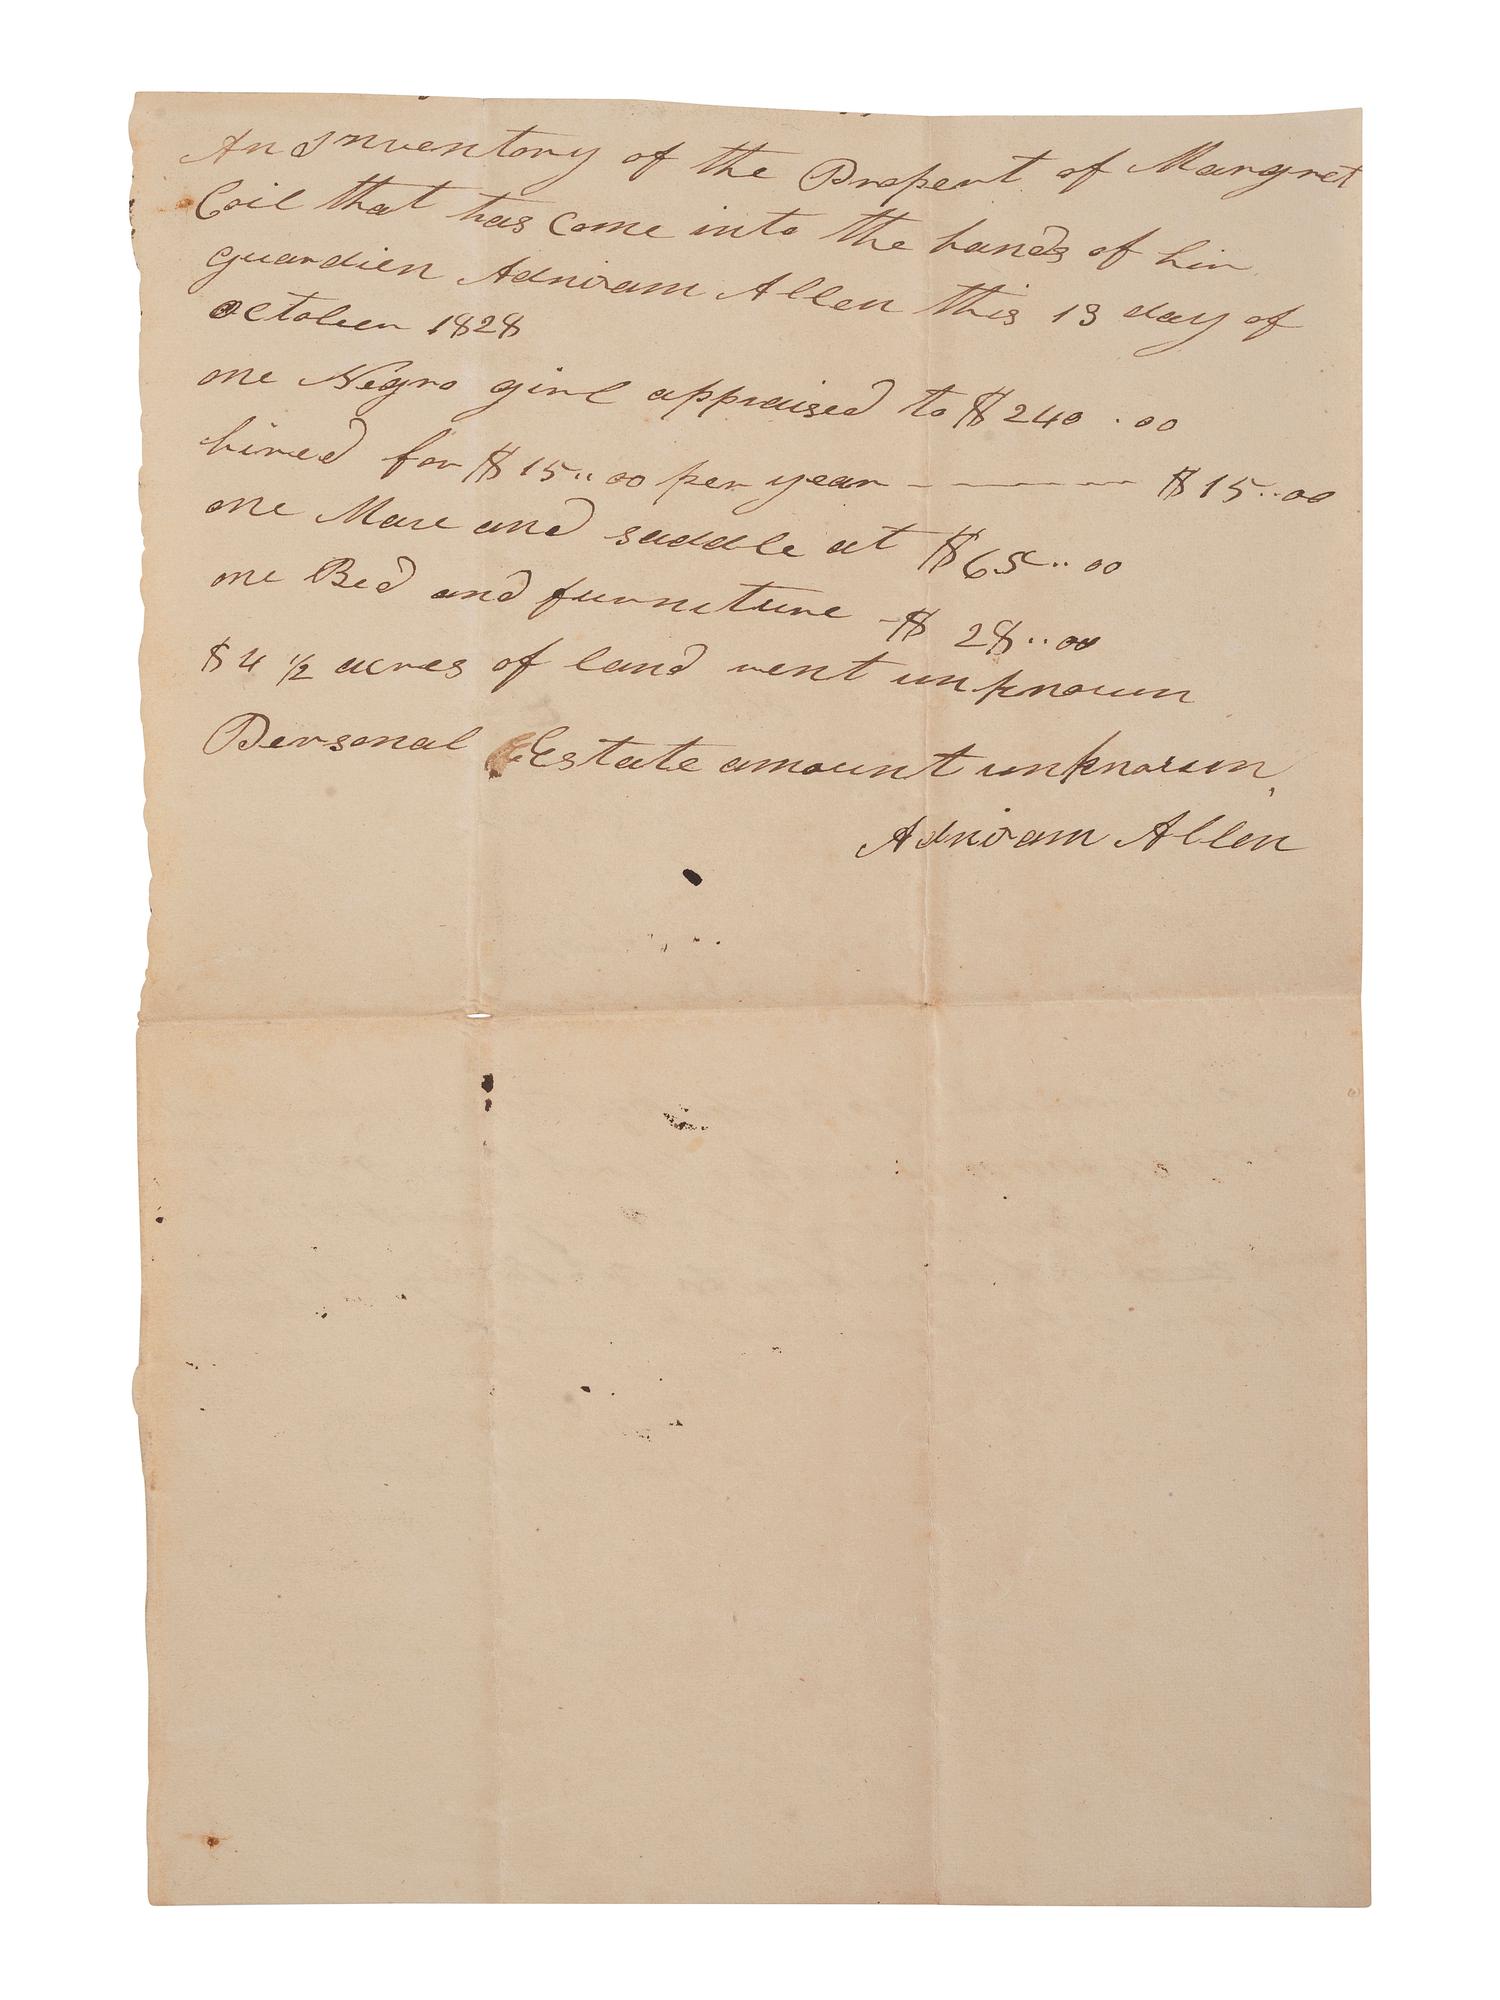 An Inventory of the Propert of Margret
Coil that has Come into the hands of hir
guardien Adniram Allen this 13 day of
october 1828
one Negro girl appraised to $240.00
hired for $15..00 per year - - - - - $15..00
one Mare and saddle at $65..00
one Bed and furniture $28..00
$4 1/2 acres of land rent unknown
Personal Estate amount unknown,
Adniram Allen